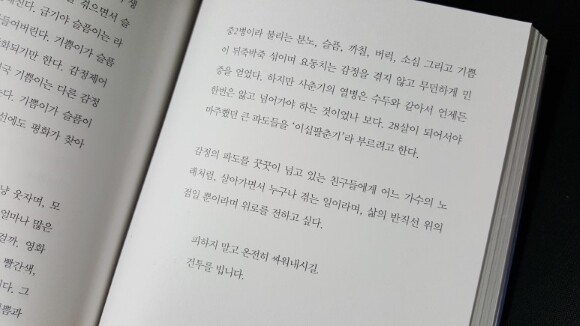 생
을 꺾으면서 슬
진다. 급기야 슬픔이는 라
들여버린다. 기쁨이가 슬픔
화되기만 한다. 감정제어
국 기쁨이는 다른 감정
다. 기쁨이가 슬픔이
선에도 평화가 찾아
냥 웃자며, 모
얼마나 많은
걸까. 영화
빨간색,
니다. 그
쁨과
중2병이라 불리는 분노, 슬픔, 까칠, 버럭, 소심 그리고 기쁨
이 뒤죽박죽 섞이며 요동치는 감정을 겪지 않고 무던하게 민
증을 얻었다. 하지만 사춘기의 열병은 수두와 같아서 언제든
한번은 앓고 넘어가야 하는 것이었나 보다. 28살이 되어서야
마주했던 큰 파도들을 ‘이십팔춘기’라 부르려고 한다.
감정의 파도를 끗끗이 넘고 있는 친구들에게 어느 가수의 노
래처럼, 살아가면서 누구나 겪는 일이라며, 삶의 반직선 위의
점일 뿐이라며 위로를 전하고 싶다.
피하지 말고 온전히 싸워내시길.
건투를 빕니다.